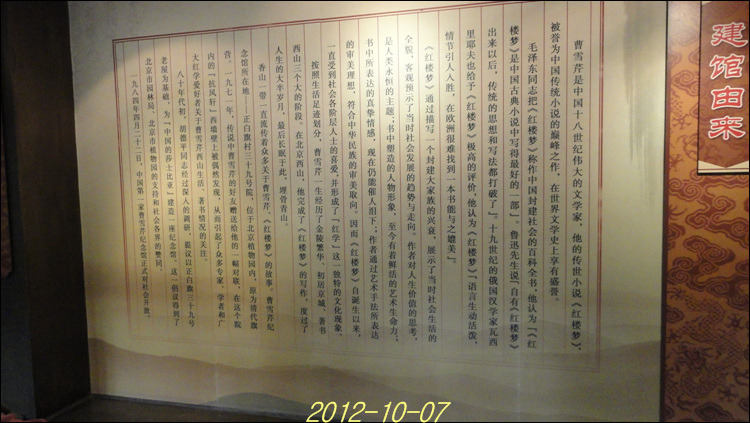 建馆由来
曹雪芹是中国十八世纪伟大的文学家，他的传世小说《红楼梦》，
被誉为中国传统小说的巅峰之作，在世界文学史上享有盛誉。
毛泽东同志把《红楼梦》称作中国封建社会的百科全书，他认为“《红
楼梦》是中国古典小说中写得最好的一部”。鲁迅先生说“自有《红楼梦》
出来以后，传统的思想和写法都打破了”。十九世纪的俄国汉学家瓦西
里耶夫也给予《红楼梦》极高的评价，他认为《红楼梦》“语言生动活泼，
情节引人入胜，在欧洲很难找到一本书能与之媲美”。
《红楼梦》通过描写一个封建大家族的兴衰，展示了当时社会生活的
全貌，客观预示了当时社会发展的趋势与走向。作者对人生价值的思考，
是人类永恒的主题；书中塑造的人物形象，至今有着鲜活的艺术生命力；
书中所表达的真挚情感，现在仍能催人泪下；作者通过艺术手法所表达
的审美理想，符合中华民族的审美取向。因而《红楼梦》自诞生以来，
一直受到社会各阶层人士的喜爱，并形成了“红学”这一独特的文化现象。
按照生活足迹划分，曹雪芹一生经历了金陵繁华、初居京城、著书
西山三个大的阶段。在北京西山，他完成了《红楼梦》的写作，度过了
人生的大半岁月，最后长眠于此，埋骨青山。
香山一带一直流传着众多关于曹雪芹《红楼梦》的故事。曹雪芹纪
念馆所在地——正白旗村三十九号院，位于北京植物园内，原为清代旗
营，一九七一年，传说中曹雪芹的好友赠送给他的一幅对联，在这个院
内的“抗风轩”西墙壁上被偶然发现，从而引起了众多专家、学者和广
大红学爱好者关于曹雪芹西山生活、著书情况的关注。
八十年代初，胡德平同志经过深入的调研，提议以正白旗三十九号
老屋为基础，为“中国的莎士比亚”建造一座纪念馆。这一倡议得到了
北京市园林局、北京市植物园的支持和社会各界的赞同。
一九八四年四月二十二日，中国第一家曹雪芹纪念馆正式对社会开放。
2012-10-07